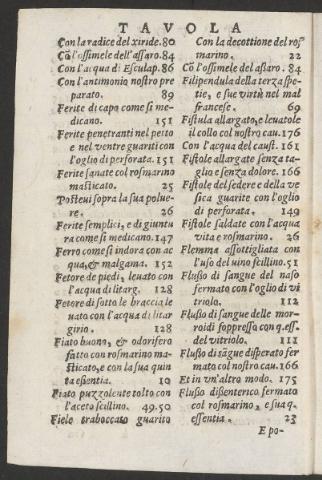 TAVOLA
Con la radice del xiride. 80
Cõ l'ossimele dell'assaro. 84
Con l'acqua di Esculap. 86
Con l'antimonio nostro pre
parato. 89
Ferite di capo come si me-
dicano. 151
Ferite penetranti nel petto
e nel ventre guariti con
l'oglio di perforata. 151
Ferite sanate col rosmarino
masticato. 25
Postevi sopra la sua polue-
re. 26
Ferite semplici, e di giuntu
ra come si medicano. 147
Ferro come si indora con ac
qua, & malgama. 152
Fetore de piedi, leuato con
l'acqua di litarg. 128
Fetore di sotto le braccia le
uato con l'acqua di litar
girio. 128
Fiato buono, & odorifero
fatto con rosmarino ma-
sticato, e con la sua quin
ta essentia. 10
Fiato puzzolente tolto con
l'aceto scillino. 49.50
Fiele traboccato guarito
Con la decottione del ros
marino. 22
Cõ l'ossimele del assaro. 84
Filipendula della terza spe-
tie, e sue virtù nel mal
francese. 69
Fistula allargato, e leuatole
il collo col nostro cau. 176
Con l'acqua del caust. 161
Fistole allargate senza ta-
glio e senza dolore. 166
Fistole del sedere e della ve
sica guarite con l'oglio
di perforata. 149
Fistole saldate con l'acqua
vita e rosmarino. 26
Flemma assottigliata con
l'uso del vino scillino. 51
Flusso di sangue del naso
fermato con l'oglio di vi
triolo. 112
Flusso di sangue delle mor-
roidi soppresso con q. ess.
del vitriolo. 111
Flusso di sãgue disperato fer
mato col nostro cau. 166
Et in vn'altro modo. 175
Flusso dissenterico fermato
col rosmarino, e sua q.
essentia. 23
E po-